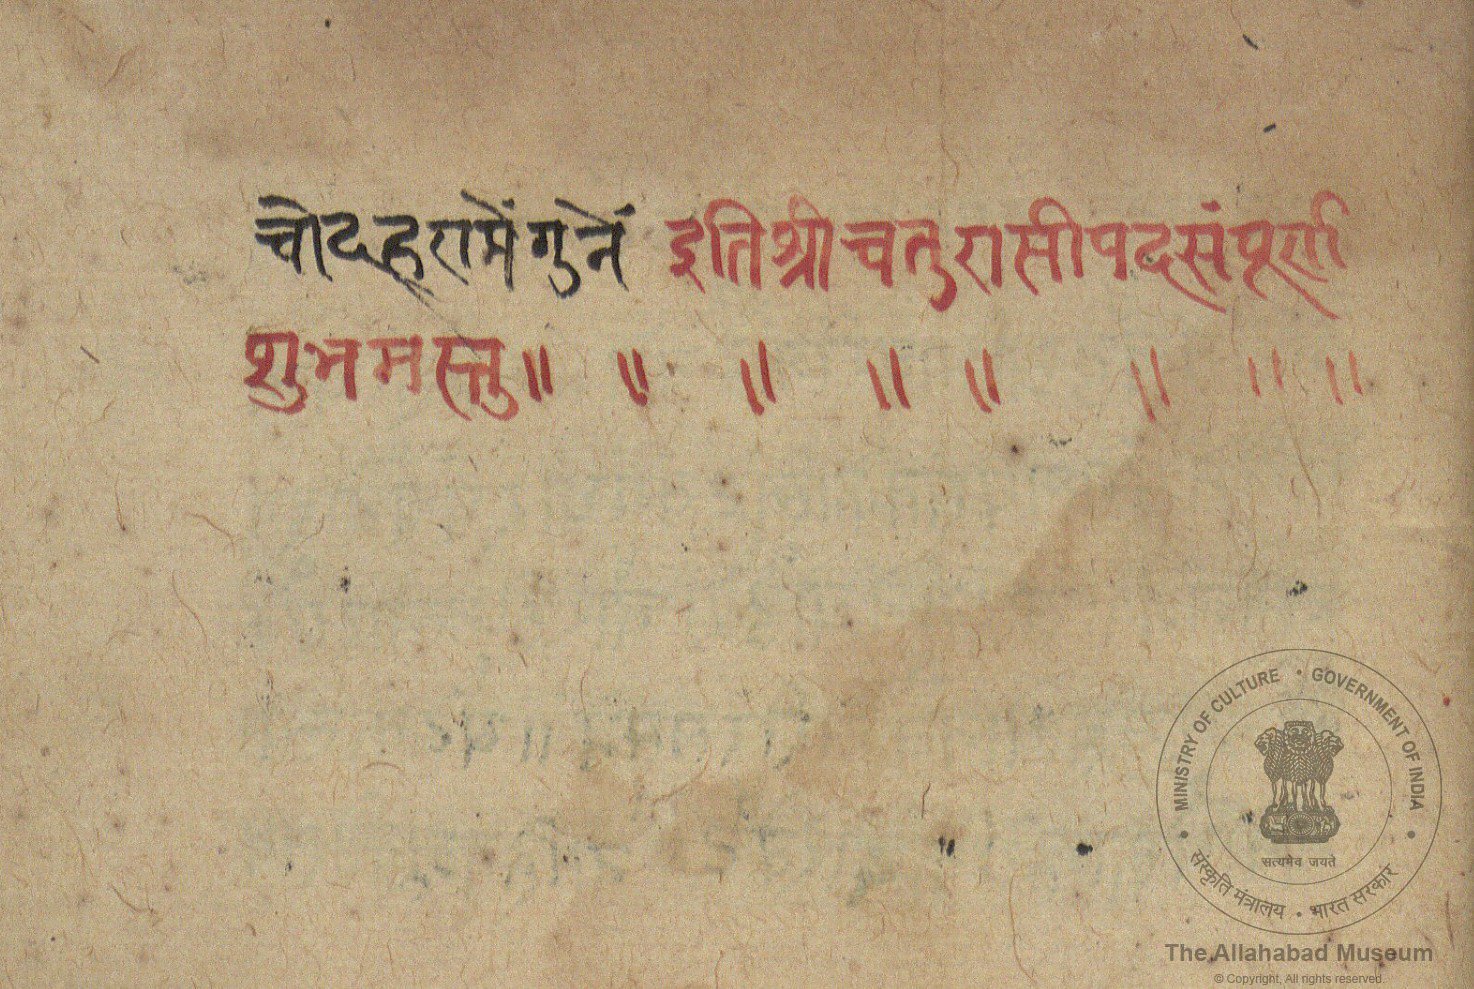 चोदहरामेंगुनें इतिश्रीचतुरासीपदसंपूर्ण
शुभमस्तु॥ ॥ ॥ ॥ ॥ ॥ ॥ ॥
MINISTRY OF CULTURE • GOVERNMENT OF INDIA
सत्यमेव जयते
संस्कृति मंत्रालय • भारत सरकार
The Allahabad Museum
© Copyright, All rights reserved.